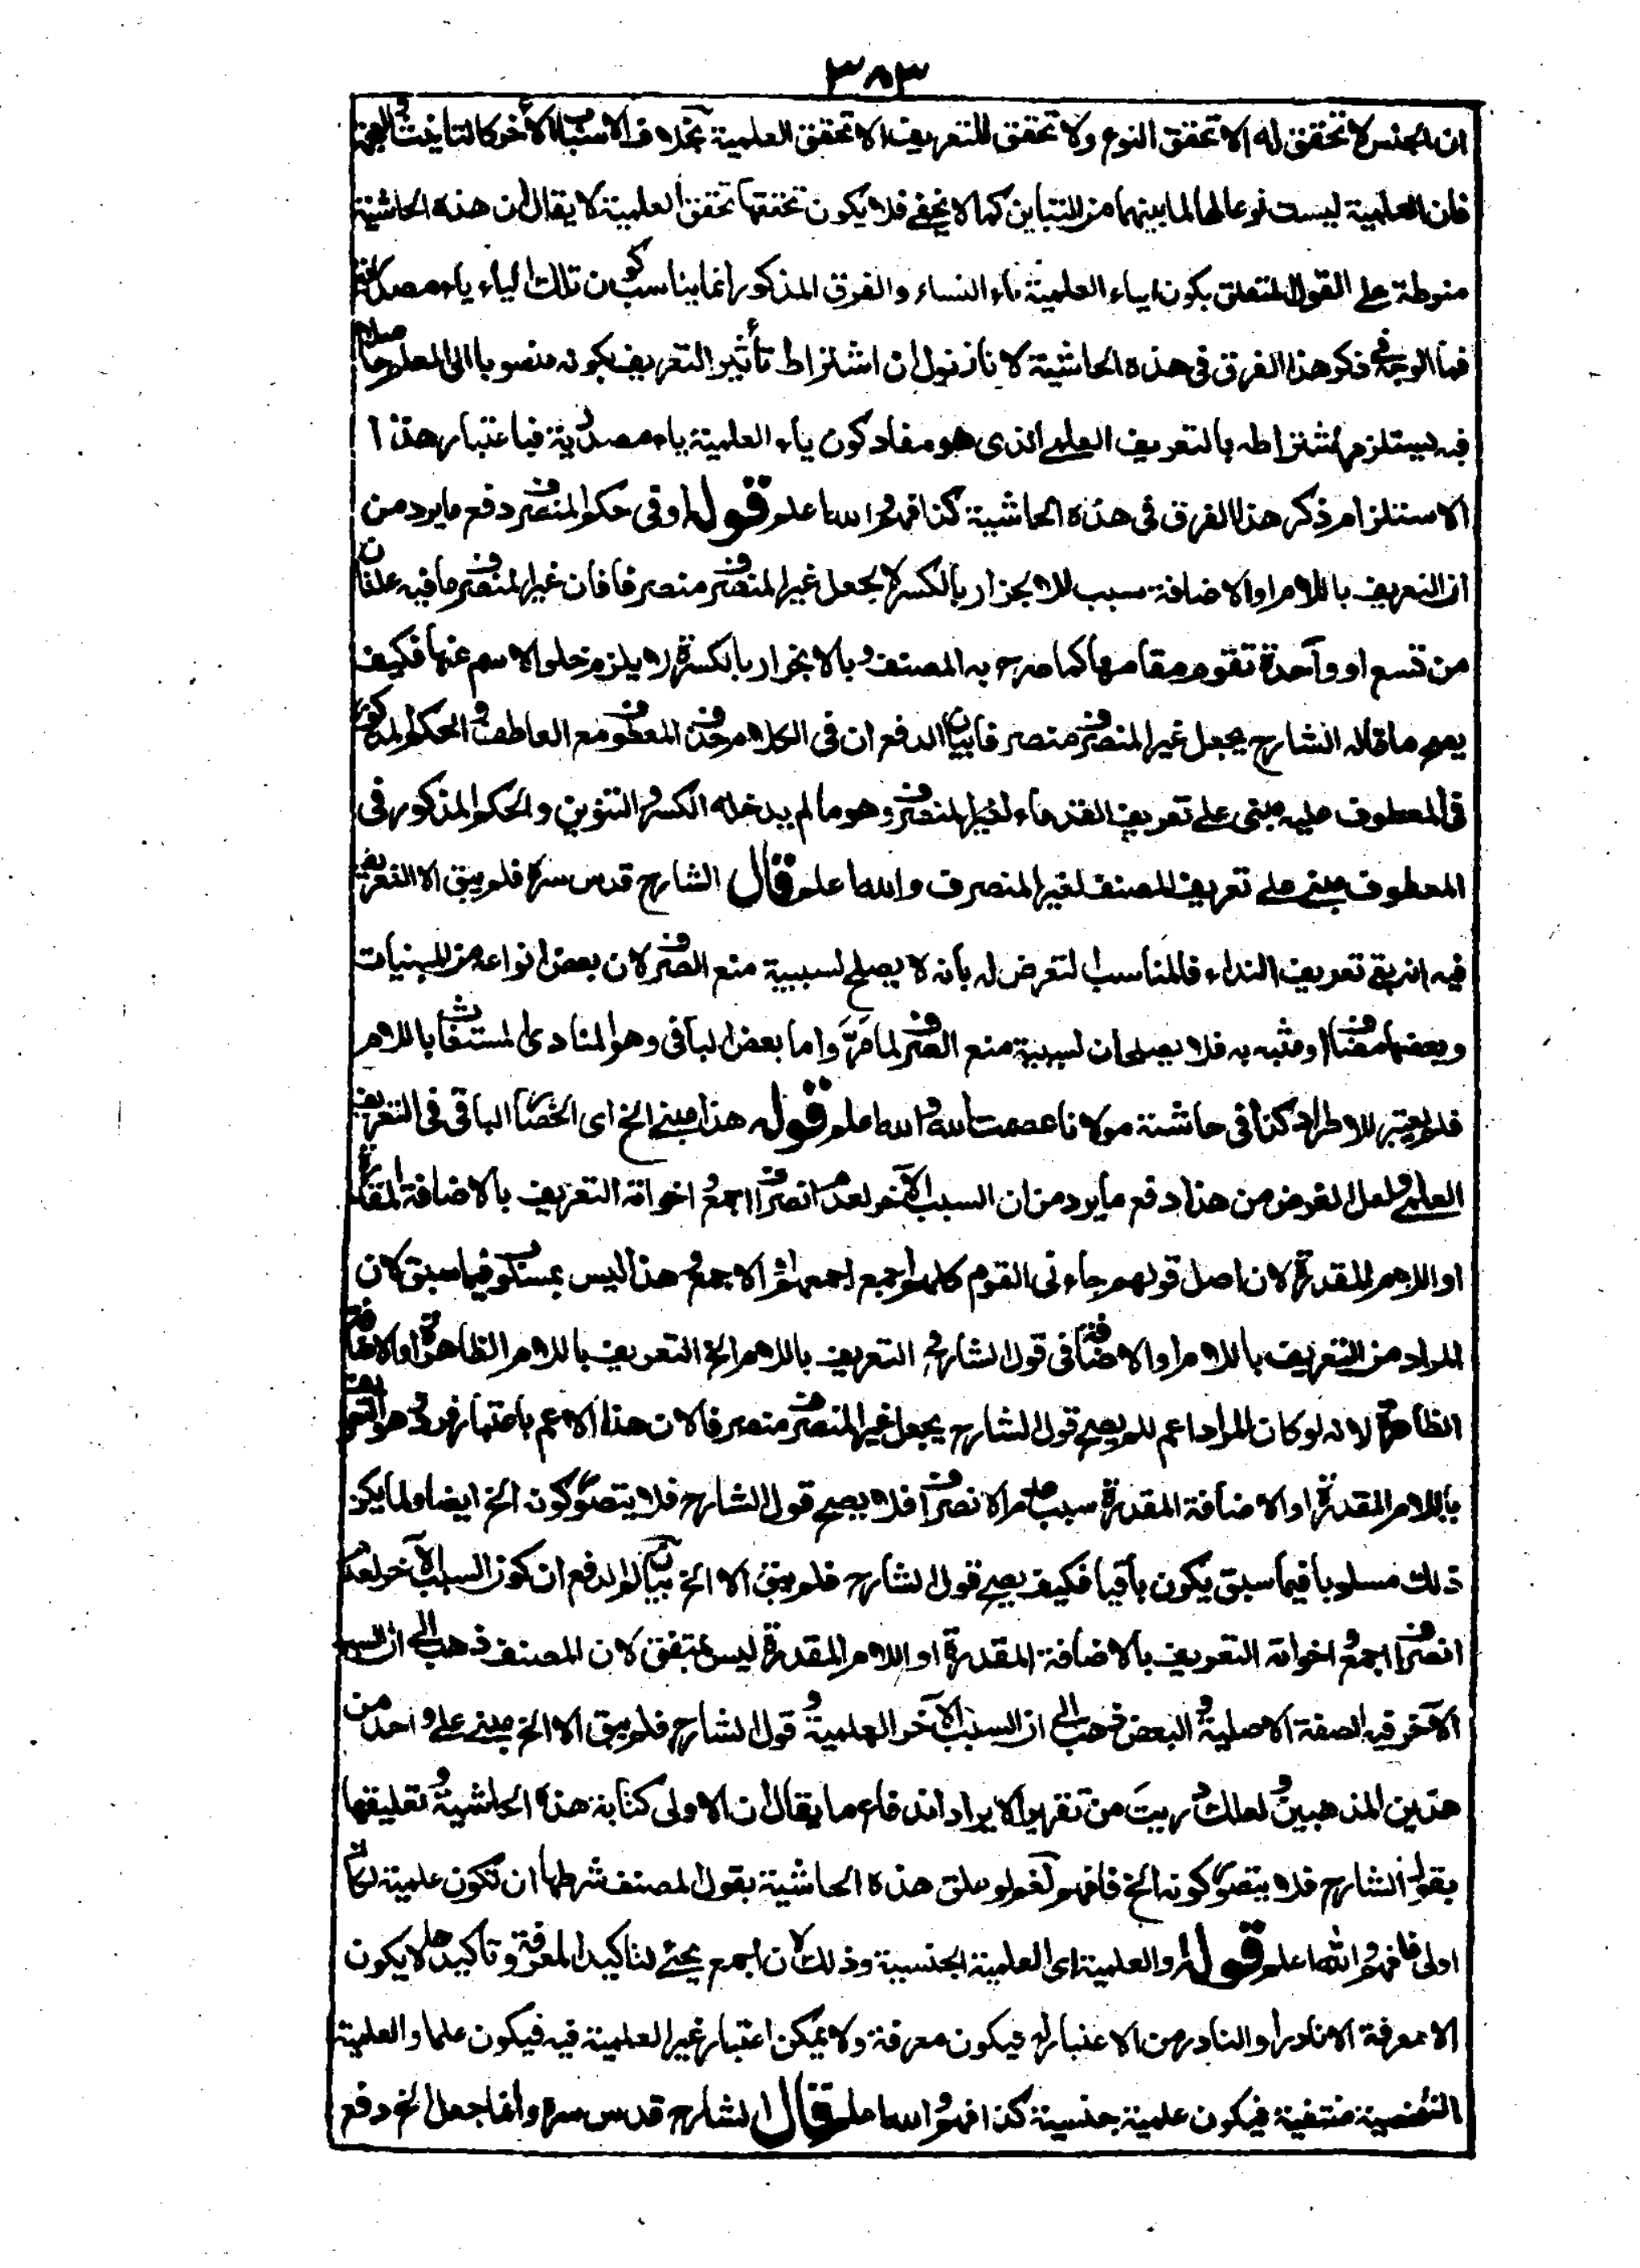 ٣٨٣
ان الجنس لا تحقق له الا تحقق النوع ولا تحقق للتعريف الا تحقق العلمية بخلاف الاسباب الأخر كالتانيث والعجمة
فان العلمية ليست نوعا لها لما بينهما من التباين كما لا يخفى فلا يكون تحققها تحقق العلمية لا يقال ان هذه الحاشية
منوطة على القول المتعلق بكون ياء العلمية ياء النساء والفرق المذكور انما يناسب كون تلك الياء ياء مصدرية
فما الوجه فى ذكر هذا الفرق فى هذه الحاشية لانا نقول ان اشتراط تأثير التعريف بكونه منصوبا الى المعلم حاصلا
فيه يستلزم اشتراطه بالتعريف العلمى الذى هو مفاد كون ياء العلمية ياء مصدرية فباعتبار هذا
الاستلزام ذكر هذا الفرق فى هذه الحاشية كذا فهم والله اعلم قوله او فى حكم المنصرف دفع ما يرد من
ان التعريف باللام او الاضافة سبب للانجرار بالكسر لا لجعل غير المنصرف منصرفا فان غير المنصرف ما فيه علتان
من تسع او واحدة تقوم مقامها كما صرح به المصنف وبالانجرار بالكسرة لا يلزم خلو الاسم عنها فكيف
يصح ما قاله الشارح يجعل غير المنصرف منصرفا بيان الدفع ان فى الكلام حذف المعطوف مع العاطف والحكم المذكور
فى المعطوف عليه مبنى على تعريف القدماء لغير المنصرف وهو ما لم يدخله الكسر والتنوين والحكم المذكور فى
المعطوف مبنى على تعريف المصنف لغير المنصرف والله اعلم قال الشارح قدس سره فلم يبق الا التعريف
فيه انه بقى تعريف النداء فالمناسب التعرض له بأنه لا يصلح لسببية منع الصرف لان بعض انواعه من المبنيات
وبعضها مضاف او مشبه به فلا يصلحان لسببية منع الصرف لما مرّ واما بعض الباقى وهو المنادى المستغاث باللام
فلم يعتبر للاطراد كذا فى حاشية مولانا عصمت الله والله اعلم قوله هذا مبنى الخ اى انحصار الباقى فى التعريف
العلمى ولعل الغرض من هذا دفع ما يرد من ان السبب الآخر لعدم انصراف اجمع واخواته التعريف بالاضافة المقدرة
او اللام المقدرة لان اصل قولهم جاءنى القوم كلهم اجمع اجمعهم او الاجمع وهذا ليس بمسلوب فيما سبق لان
المراد من التعريف باللام او الاضافة فى قول الشارح التعريف باللام الخ التعريف باللام الظاهرة او الاضافة
الظاهرة لانه لو كان المراد اعم لم يصح قول الشارح يجعل غير المنصرف منصرفا لان هذا الاعم باعتبار فرده وهو التعريف
باللام المقدرة او الاضافة المقدرة سبب عدم الانصراف فلا يصح قول الشارح فلا يتصور كونه الخ ايضا ولما لم يكن
ذلك مسلوبا فيما سبق يكون باقيا فكيف يصح قول الشارح فلم يبق الا الخ بيان الدفع ان كون السبب الآخر لعدم
انصراف اجمع واخواته التعريف بالاضافة المقدرة او اللام المقدرة ليس بمتفق لان المصنف ذهب الى ان السبب
الآخر فيه الصفة الاصلية والبعض ذهب الى ان السبب الآخر العلمية وقول الشارح فلم يبق الا الخ مبنى على واحد من
هذين المذهبين ولعلك دريت من تقرير الايراد اندفاع ما يقال ان الاولى كتابة هذه الحاشية وتعليقها
بقول الشارح فلا يتصور كونه الخ فافهم نعم لو علق هذه الحاشية بقول المصنف شرطها ان تكون علمية لكان
اولى فافهم والله اعلم قوله والعلمية اى العلمية الجنسية وذلك لان اجمع يجئ لتاكيد المعرفة وتاكيدها لا يكون
الا معرفة الا نادرا والنادر من الاعتبار له فيكون معرفة ولا يمكن اعتبار غير العلمية فيه فيكون علما والعلمية
الشخصية منتفية فيكون علمية جنسية كذا فهم والله اعلم قال الشارح قدس سره وانما جعل الخ دفع